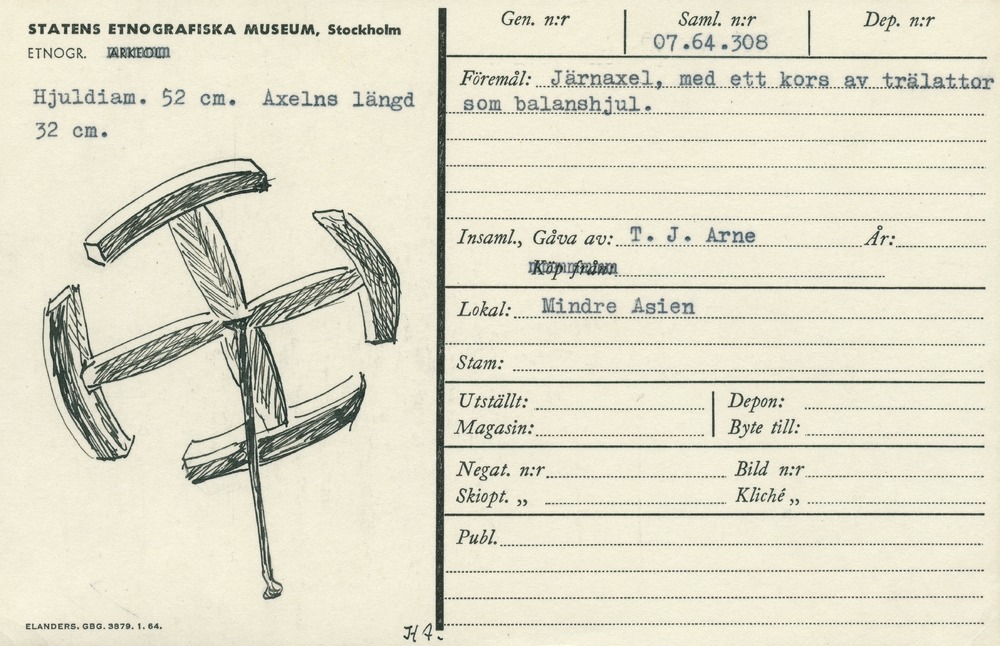 STATENS ETNOGRAFISKA MUSEUM, Stockholm
ETNOGR. ARKEOL.
Hjuldiam. 52 cm. Axelns längd
32 cm.
ELANDERS. GBG. 3879. 1. 64.
Gen. n:r Saml. n:r Dep. n:r
07.64.308
Föremål: Järnaxel, med ett kors av trälattor
som balanshjul.
Insaml., Gåva av: T. J. Arne År:
Köp från:
Lokal: Mindre Asien
Stam:
Utställt: Depon:
Magasin: Byte till:
Negat. n:r Bild n:r
Skiopt. „ Kliché „
Publ.